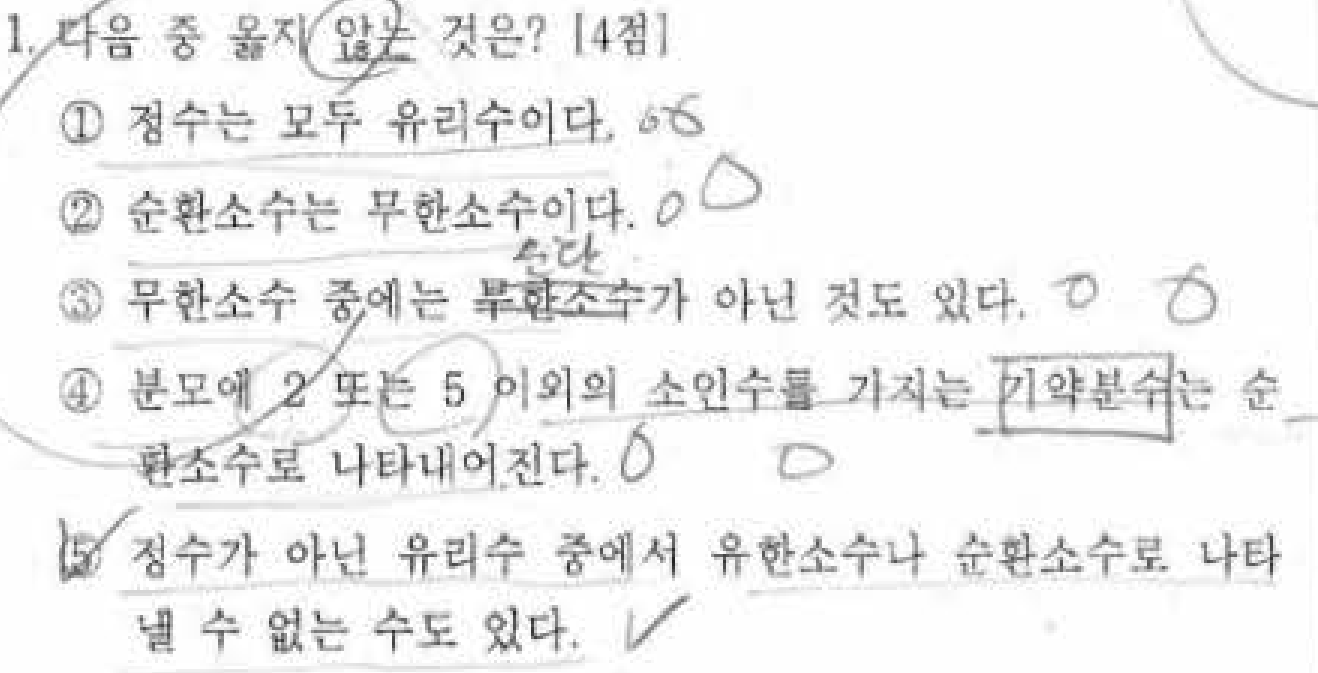 1. 다음 중 옳지 않은 것은? [4점]
① 정수는 모두 유리수이다.
② 순환소수는 무한소수이다.
순단
③ 무한소수 중에는 무한소수가 아닌 것도 있다.
④ 분모에 2 또는 5 이외의 소인수를 가지는 기약분수는 순
환소수로 나타내어진다.
⑤ 정수가 아닌 유리수 중에서 유한소수나 순환소수로 나타
낼 수 없는 수도 있다.